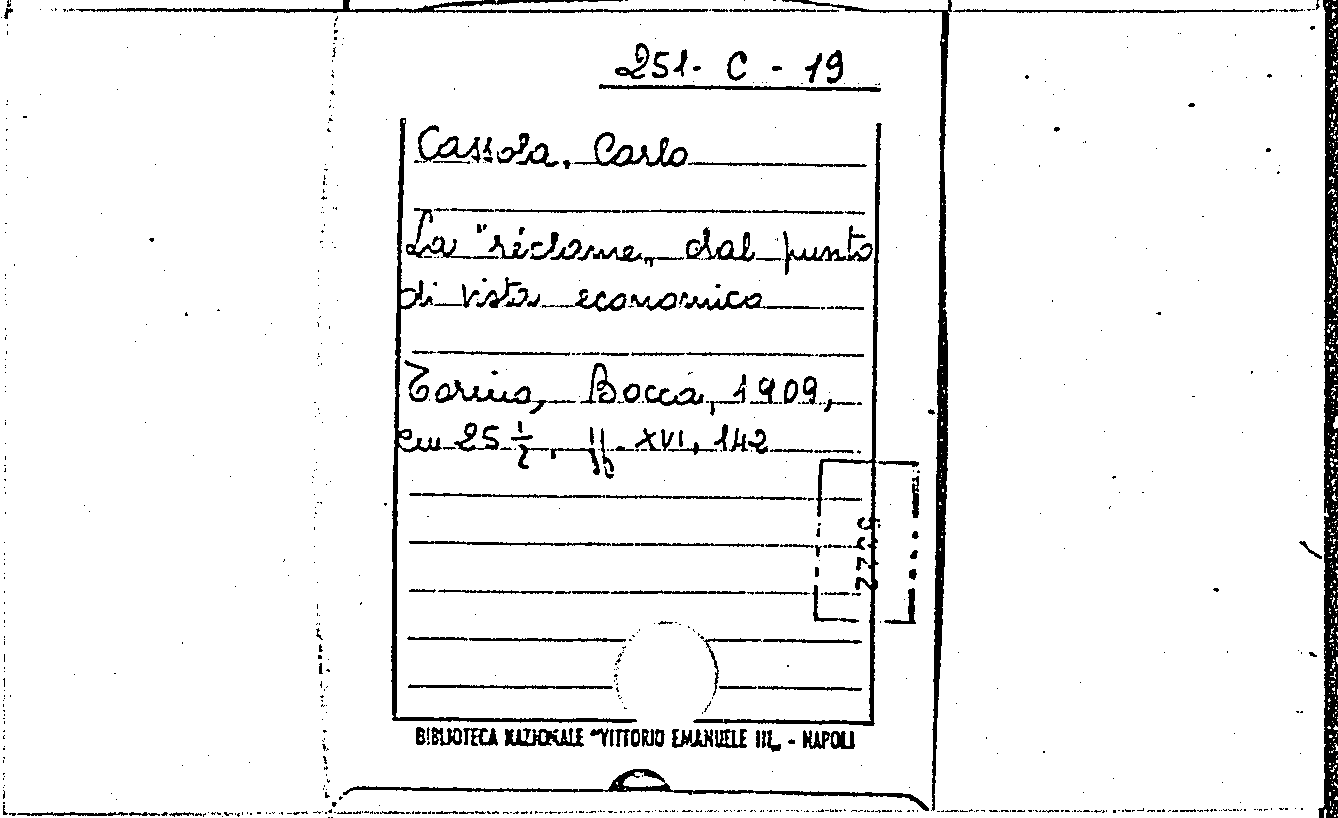 251- C - 19
Cassola, Carlo
La "réclame„ dal punto
di vista economico
Torino, Bocca, 1909,
cm 25 1/2, pp. XVI, 142
BIBLIOTECA NAZIONALE "VITTORIO EMANUELE III„ - NAPOLI